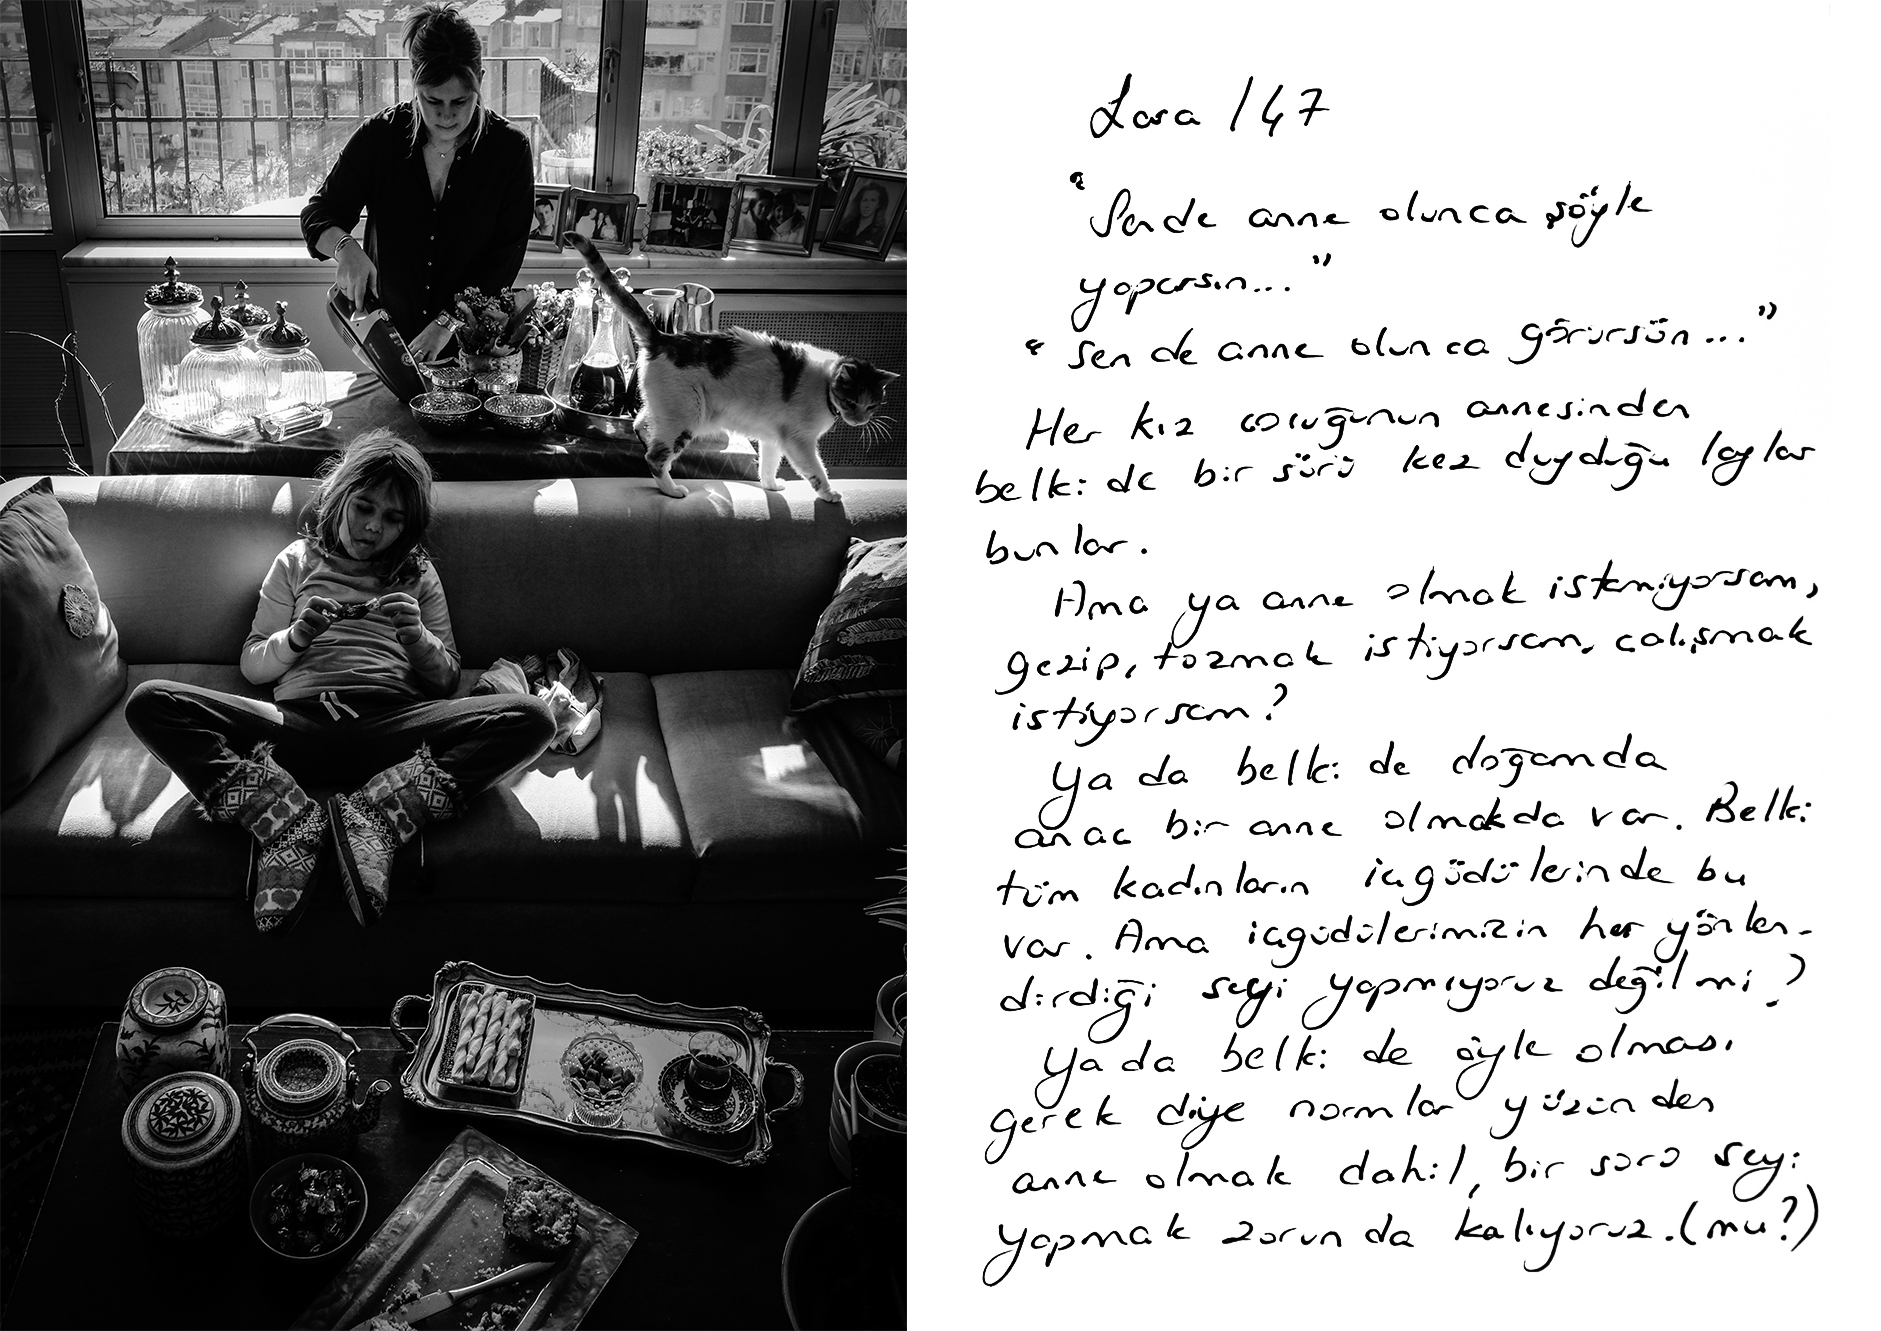 Lara / 47
"Sende anne olunca şöyle
yaparsın..."
"Sen de anne olunca görürsün..."
Her kız cocuğunun annesinden
belki de bir sürü kez duyduğu laflar
bunlar.
Ama ya anne olmak istemiyorsam,
gezip, tozmak istiyorsam, calışmak
istiyorsam?
Ya da belki de doğamda
anac bir anne olmakda var. Belki
tüm kadınların icgüdülerinde bu
var. Ama icgüdülerimizin her yönlen-
dirdiği seyi yapmıyoruz değil mi?
Ya da belki de öyle olması
gerek diye normlar yüzünden
anne olmak dahil, bir sürü seyi
yapmak zorunda kalıyoruz. (mu?)